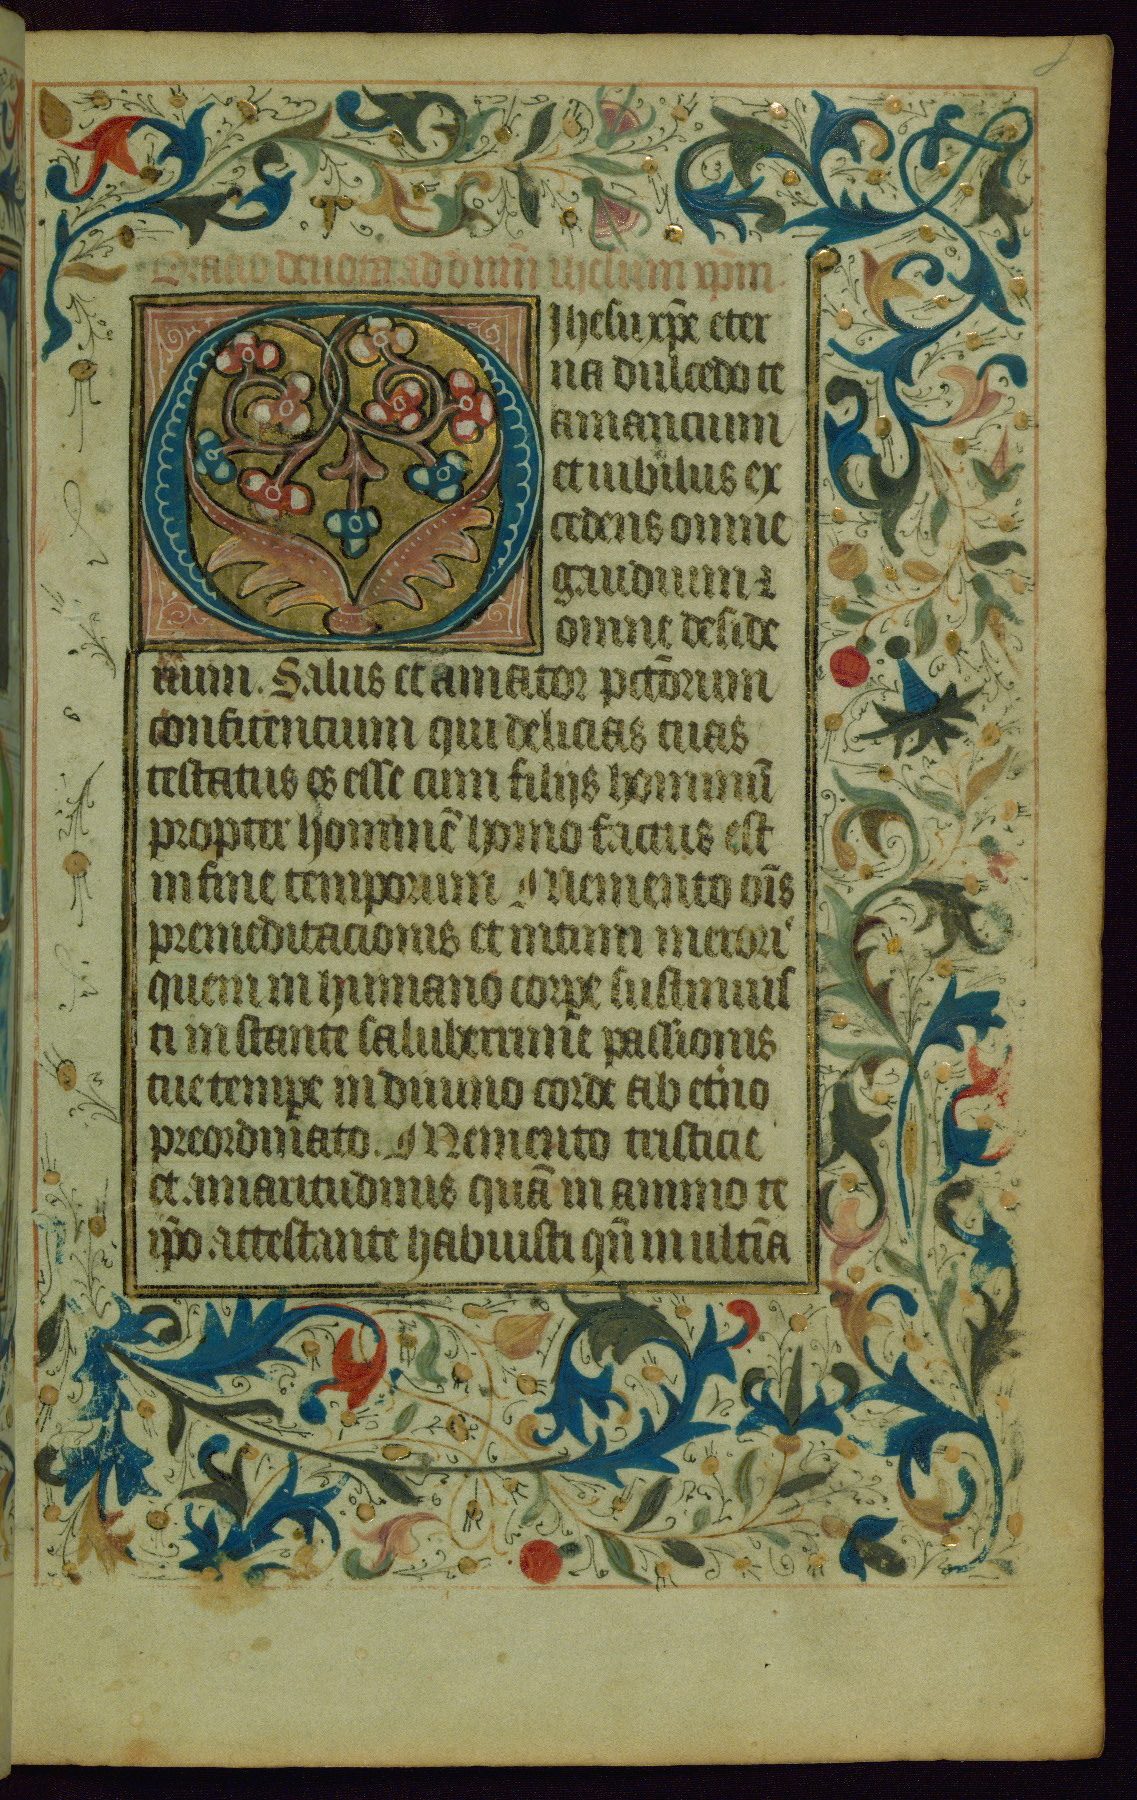 Oratio deuota ad dnm̄ ihesum xp̄m.
O Ihesu xp̄e eter
na dulcedo te
amancium
et iubilus ex
cedens omne
gaudium ⁊
omne deside
rium. Salus et amator pctōrum
confitencium qui delicias tuas
testatus es esse cum filijs hominū
propter hominē homo factus est
in fine temporum Memento oīs
premeditacionis et intimi meroris
quem in humano corpꝑe sustinuis
ti instante saluberrime passionis
tue tempꝑe in diuino corde ab etno
preordinato. Memento tristicie
et amaritudinis quā in animo te
ip̄o attestante habuisti qn̄ in ultīa